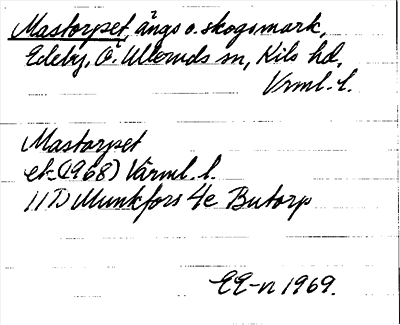 Mastorpet, ängs o. skogsmark,
Edeby, Ö. Ulleruds sn, Kils hd,
Vrml. l.
Mastorpet
ek. (1968) Värml. l.
11D Munkfors 4e Butorp
EE-n 1969.